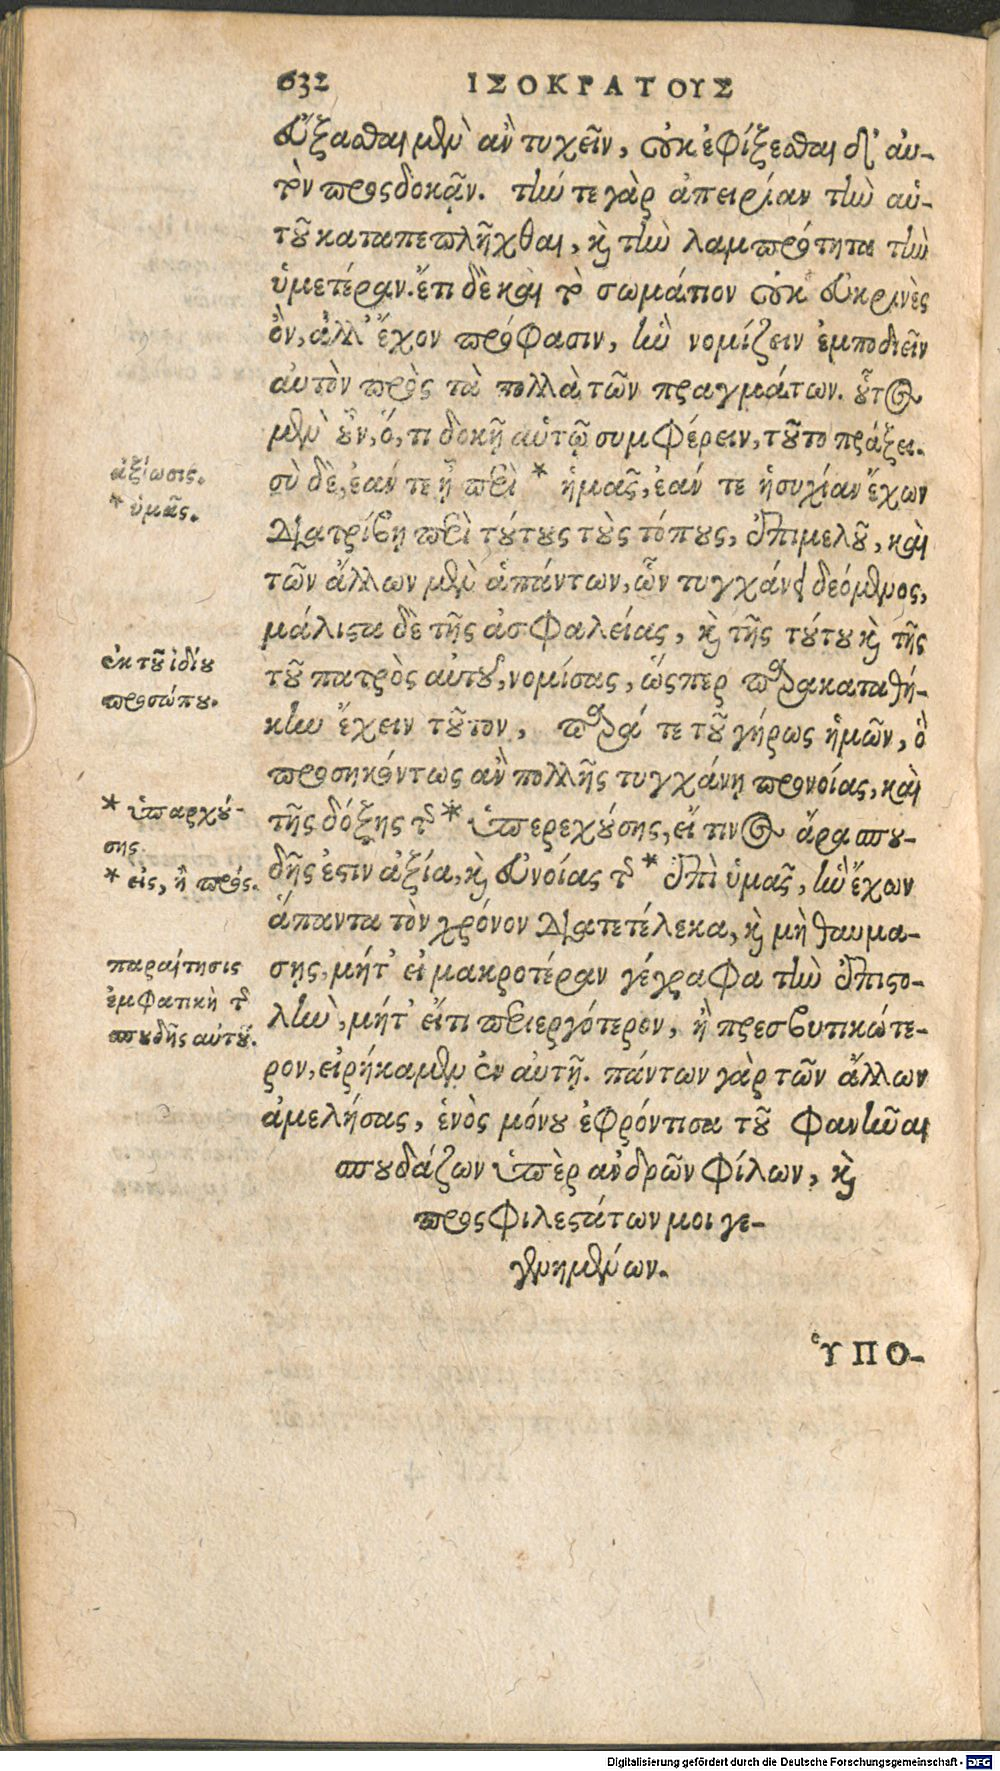 632 ΙΣΟΚΡΑΤΟΥΣ
εὔξασθαι μὲν ἂν τυχεῖν, οὐκ ἐφίξεσθαι δ' αὐ-
τὸν προσδοκᾷν. τήν τε γὰρ ἀπειρίαν τὴν αὐ-
τοῦ καταπεπλῆχθαι, καὶ τὴν λαμπρότητα τὴν
ὑμετέραν. ἔτι δὲ καὶ τὸ σωμάτιον οὐκ εὐκρινὲς
ὂν, ἀλλ' ἔχον πρόφασιν, ἣν νομίζειν ἐμποδιεῖν
αὐτὸν πρὸς τὰ πολλὰ τῶν πραγμάτων. οὗτος
μὲν οὖν, ὅ, τι δοκῇ αὐτῷ συμφέρειν, τοῦτο πράξει.
σὺ δὲ, ἐάν τε ᾖ περὶ * ἡμᾶς, ἐάν τε ἡσυχίαν ἔχων
διατρίβῃ περὶ τούτους τοὺς τόπους, ἐπιμελοῦ, καὶ
τῶν ἄλλων μὲν ἁπάντων, ὧν τυγχάνει δεόμενος,
μάλιστα δὲ τῆς ἀσφαλείας, καὶ τῆς τούτου καὶ τῆς
τοῦ πατρὸς αὐτοῦ, νομίσας, ὥσπερ παρακαταθή-
κην ἔχειν τοῦτον, παρά τε τοῦ γήρως ἡμῶν, ὃ
προσηκόντως ἂν πολλῆς τυγχάνῃ προνοίας, καὶ
τῆς δόξης τῆς * ὑπερεχούσης, εἴ τινος ἄρα σπου-
δῆς ἐστιν ἀξία, καὶ εὐνοίας τῆς * ἐπὶ ὑμᾶς, ἣν ἔχων
ἅπαντα τὸν χρόνον διατετέλεκα, καὶ μὴ θαυμά-
σῃς, μήτ' εἰ μακροτέραν γέγραφα τὴν ἐπιστο-
λὴν, μήτ' εἴ τι περιεργότερον, ἢ πρεσβυτικώτε-
ρον, εἰρήκαμεν ἐν αὐτῇ. πάντων γὰρ τῶν ἄλλων
ἀμελήσας, ἑνὸς μόνου ἐφρόντισα τοῦ φανῆναι
σπουδάζων ὑπὲρ ἀνδρῶν φίλων, καὶ
προσφιλεστάτων μοι γε-
γενημένων.
ἀξίωσις.
* ὑμᾶς.
ἐκ τοῦ ἰδίου
προσώπου.
* ὑπαρχού-
σης
* εἰς, ἢ πρός.
παραίτησις
ἐμφατικὴ τῆς
σπουδῆς αὐτοῦ.
ὙΠΟ-
Digitalisierung gefördert durch die Deutsche Forschungsgemeinschaft - DFG